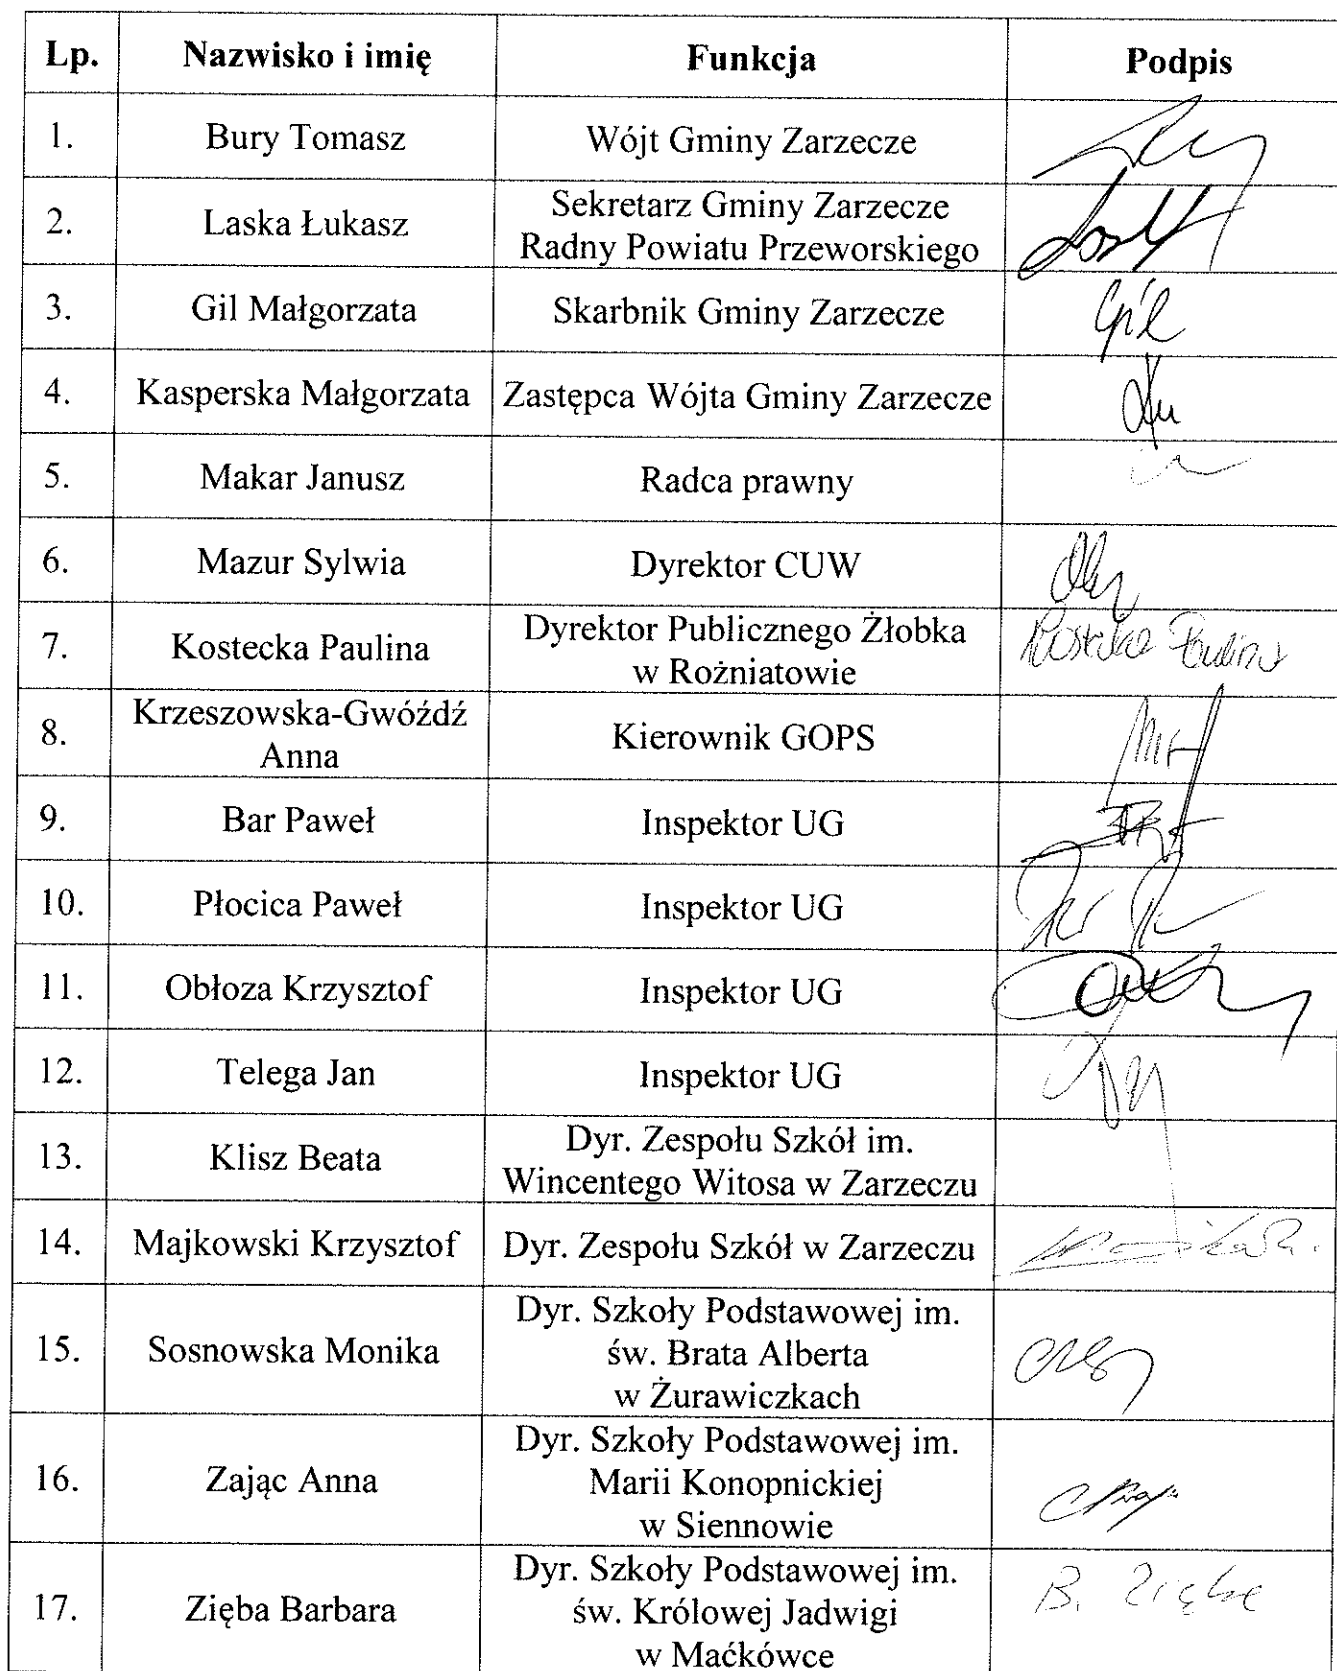 Lp. Nazwisko i imię Funkcja Podpis
1. Bury Tomasz Wójt Gminy Zarzecze
2. Laska Łukasz Sekretarz Gminy Zarzecze
Radny Powiatu Przeworskiego
3. Gil Małgorzata Skarbnik Gminy Zarzecze Gil
4. Kasperska Małgorzata Zastępca Wójta Gminy Zarzecze
5. Makar Janusz Radca prawny
6. Mazur Sylwia Dyrektor CUW
7. Kostecka Paulina Dyrektor Publicznego Żłobka
w Rożniatowie Kostecka Paulina
8. Krzeszowska-Gwóźdź
Anna Kierownik GOPS
9. Bar Paweł Inspektor UG
10. Płocica Paweł Inspektor UG
11. Obłoza Krzysztof Inspektor UG
12. Telega Jan Inspektor UG
13. Klisz Beata Dyr. Zespołu Szkół im.
Wincentego Witosa w Zarzeczu
14. Majkowski Krzysztof Dyr. Zespołu Szkół w Zarzeczu
15. Sosnowska Monika Dyr. Szkoły Podstawowej im.
św. Brata Alberta
w Żurawiczkach
16. Zając Anna Dyr. Szkoły Podstawowej im.
Marii Konopnickiej
w Siennowie
17. Zięba Barbara Dyr. Szkoły Podstawowej im.
św. Królowej Jadwigi
w Maćkówce B. Zięba